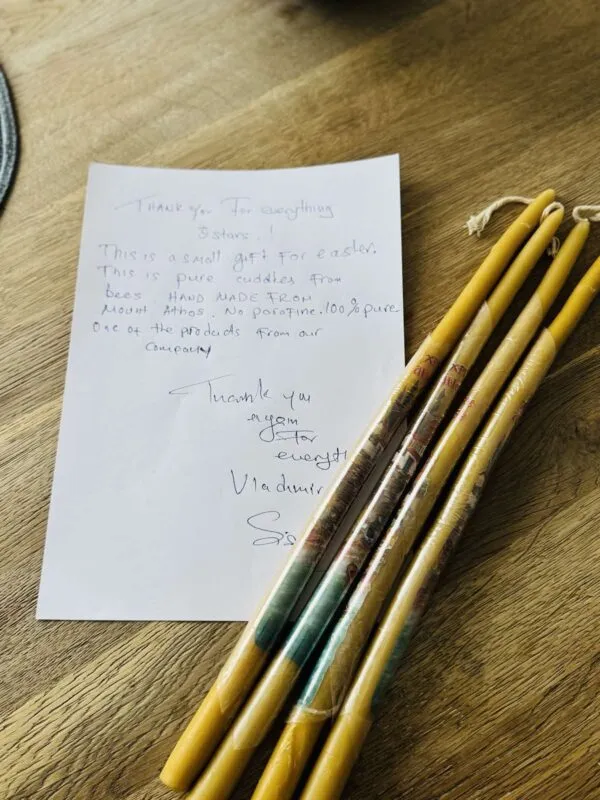 Thank you For everything
3 stars.!
This is a small gift For easter.
This is pure cuddles From
bees. HAND MADE FROM
Mount Athos. No parafine. 100% pure
One of the products From our
company
Thank you
again
For
everyth
Vladimir
Sis